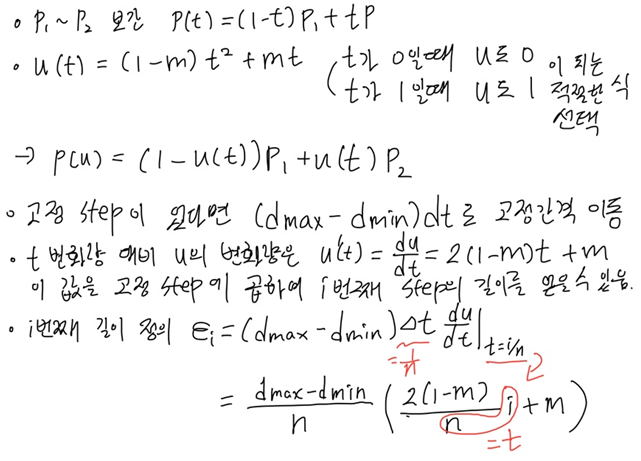 • P₁ ~ P₂ 보간 P(t) = (1-t)P₁ + tP
• u(t) = (1-m)t² + mt (t가 0일때 u도 0 이 되는
t가 1일때 u도 1 적절한 식
선택
→ P(u) = (1-u(t))P₁ + u(t)P₂
• 고정 step이 있다면 (dmax - dmin)dt로 고정간격 이동
• t 변화량 대비 u의 변화량은 u'(t) = du/dt = 2(1-m)t + m
이 값을 고정 step에 곱하여 i번째 step의 길이를 얻을 수 있음.
• i번째 길이 정의 ϵᵢ = (dmax - dmin) Δt du/dt |t=i/n
= 1/n
= (dmax - dmin)/n (2(1-m)/n i + m)
= t